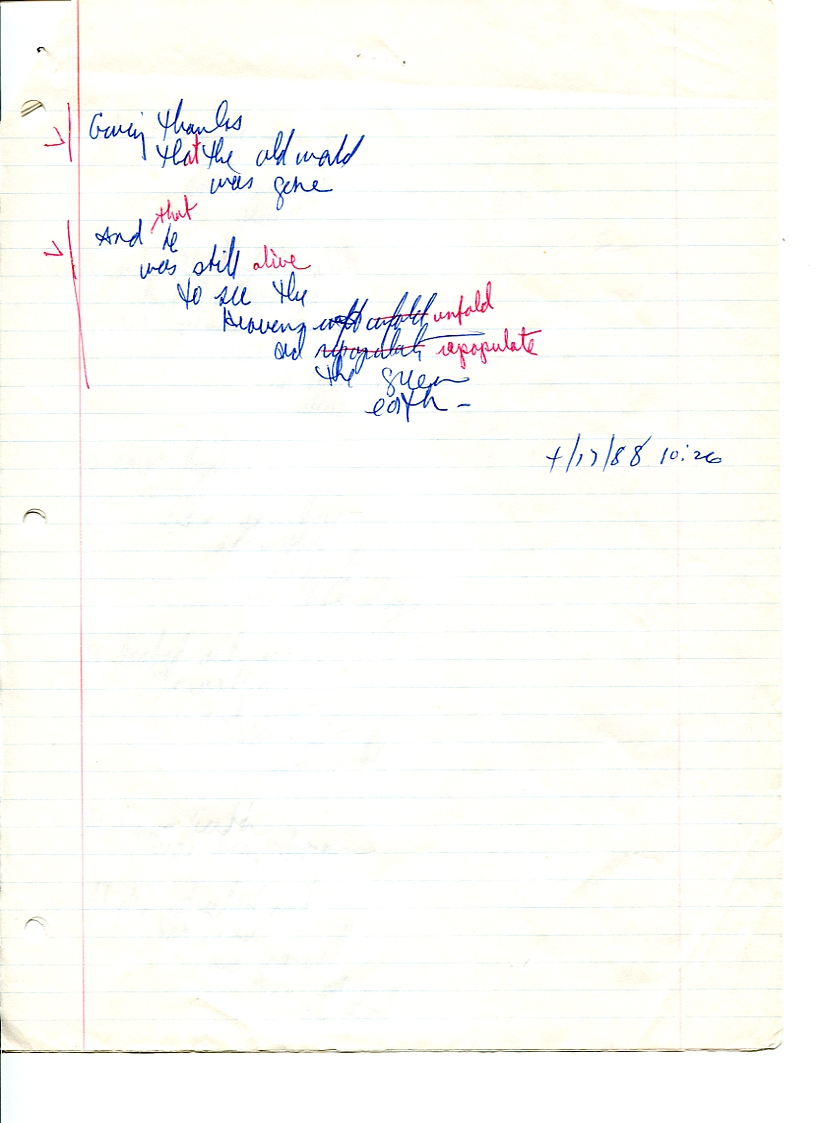 Giving thanks
that the old world
was gone
that
And he
was still alive
to see the
Heavens unfold unfold
and repopulate repopulate
the green
earth -
4/17/88 10:26